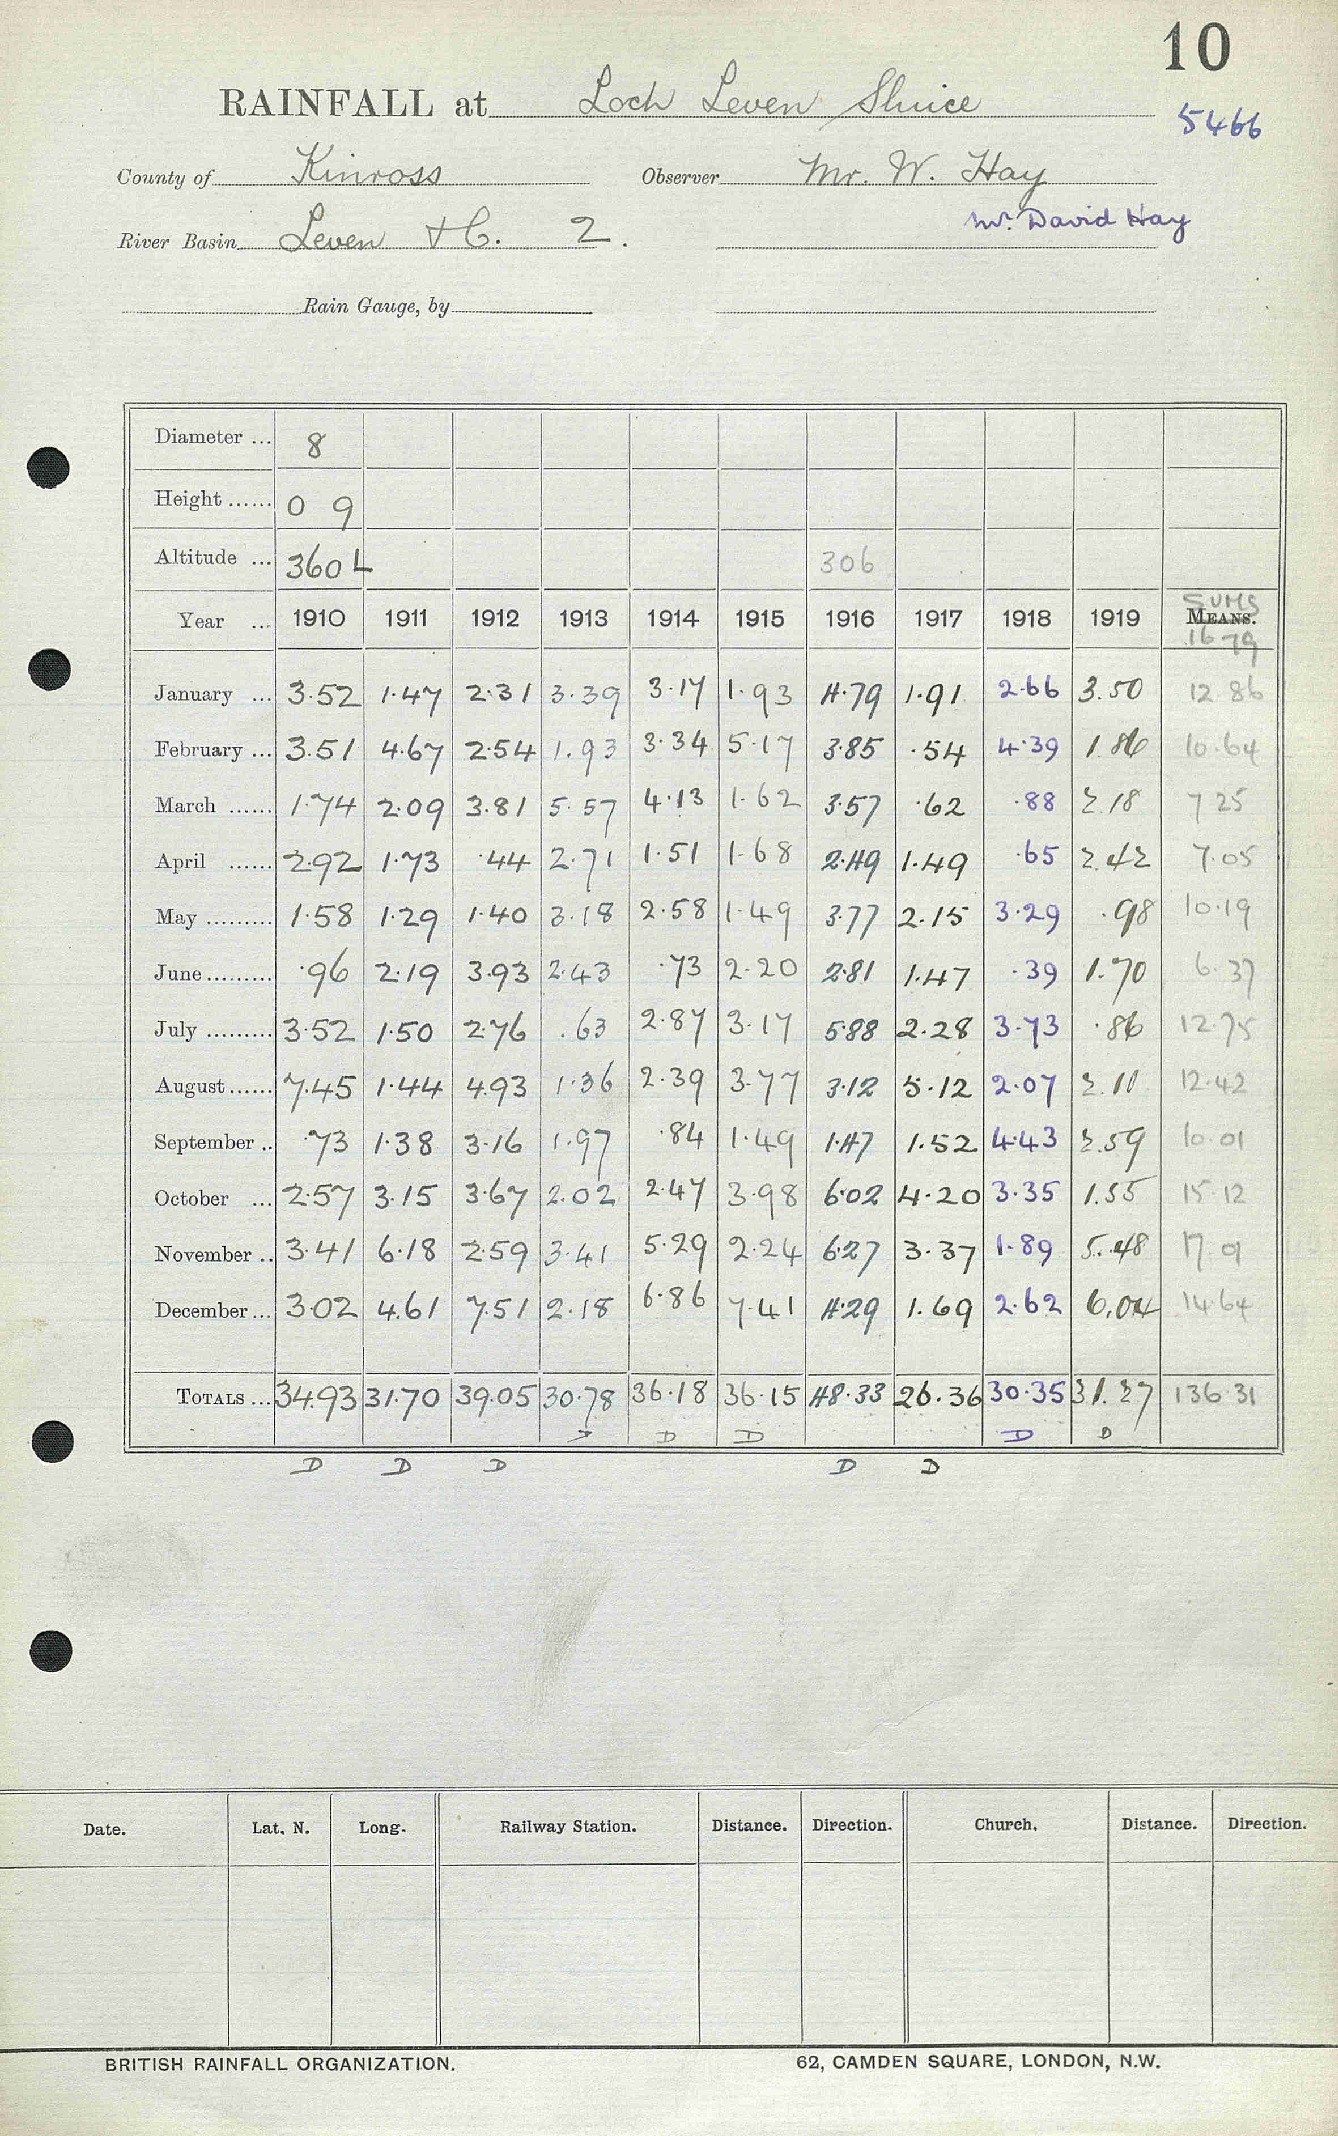 10
RAINFALL at Loch Leven Sluice
5466
County of Kinross Observer Mr. W. Hay
Mr. David Hay
River Basin Leven &c. 2.
Rain Gauge, by
Diameter ... 8
Height ...... 0 9
Altitude ... 360 L 306
SUMS
Year ... 1910 1911 1912 1913 1914 1915 1916 1917 1918 1919 MEANS.
16-79
January ... 3.52 1.47 2.31 3.39 3.17 1.93 4.79 1.91 2.66 3.50 12.86
February ... 3.51 4.67 2.54 1.93 3.34 5.17 3.85 .54 4.39 1.86 10.64
March ...... 1.74 2.09 3.81 5.57 4.13 1.62 3.57 .62 .88 2.18 7.25
April ...... 2.92 1.73 .44 2.71 1.51 1.68 2.49 1.49 .65 2.42 7.05
May ......... 1.58 1.29 1.40 3.18 2.58 1.49 3.77 2.15 3.29 .98 10.19
June ......... .96 2.19 3.93 2.43 .73 2.20 2.81 1.47 .39 1.70 6.37
July ......... 3.52 1.50 2.76 .63 2.87 3.17 5.88 2.28 3.73 .86 12.75
August ...... 7.45 1.44 4.93 1.36 2.39 3.77 3.12 5.12 2.07 2.11 12.42
September .. .73 1.38 3.16 1.97 .84 1.49 1.47 1.52 4.43 2.59 10.01
October ... 2.57 3.15 3.67 2.02 2.47 3.98 6.02 4.20 3.35 1.55 15.12
November .. 3.41 6.18 2.59 3.41 5.29 2.24 6.27 3.37 1.89 5.48 17.01
December ... 3.02 4.61 7.51 2.18 6.86 7.41 4.29 1.69 2.62 6.04 14.64
TOTALS ... 34.93 31.70 39.05 30.78 36.18 36.15 48.33 26.36 30.35 31.27 136.31
D D D D D
D D D D D
Date. Lat. N. Long. Railway Station. Distance. Direction. Church. Distance. Direction.
BRITISH RAINFALL ORGANIZATION. 62, CAMDEN SQUARE, LONDON, N.W.